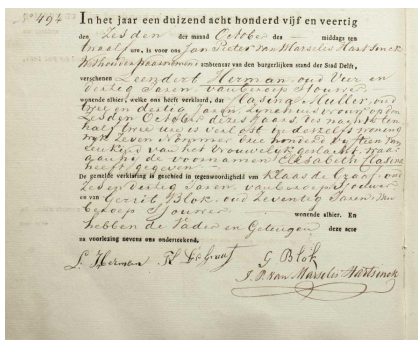 No 494
In het jaar een duizend acht honderd vijf en veertig
den Zesden der maand October des middags ten
twaalf ure, is voor ons Jan Pieter van Marselis Hartsinck
Wethouder ambtenaar van den burgerlijken stand der Stad Delft,
verschenen Leendert Herman, oud Vier en
Dertig Jaren, van beroep Sjouwer
wonende alhier, welke ons heeft verklaard, dat Clasina Muller, oud
Drie en dertig Jaren Zijne huisvrouw op den
Zesden October dezes Jaars, des nachts ten
half drie ure is verlost in derzelfs woning
Wijk Zeven Nommer Drie honderd Vijftien van
een kind van het vrouwelijk geslacht, waar
aan hij de voornamen Elisabeth Clasina
heeft gegeven
De gemelde verklaring is geschied in tegenwoordigheid van Klaas de Graaf, oud
Zes en Dertig Jaren, van beroep Sjouwer
en van Gerrit Blok, oud Zeventig Jaren, van
beroep Sjouwer wonende alhier. En
hebben de Vader en Getuigen deze acte
na voorlezing nevens ons onderteekend.
L. Herman K de Graaf G Blok
J. P. van Marselis Hartsinck